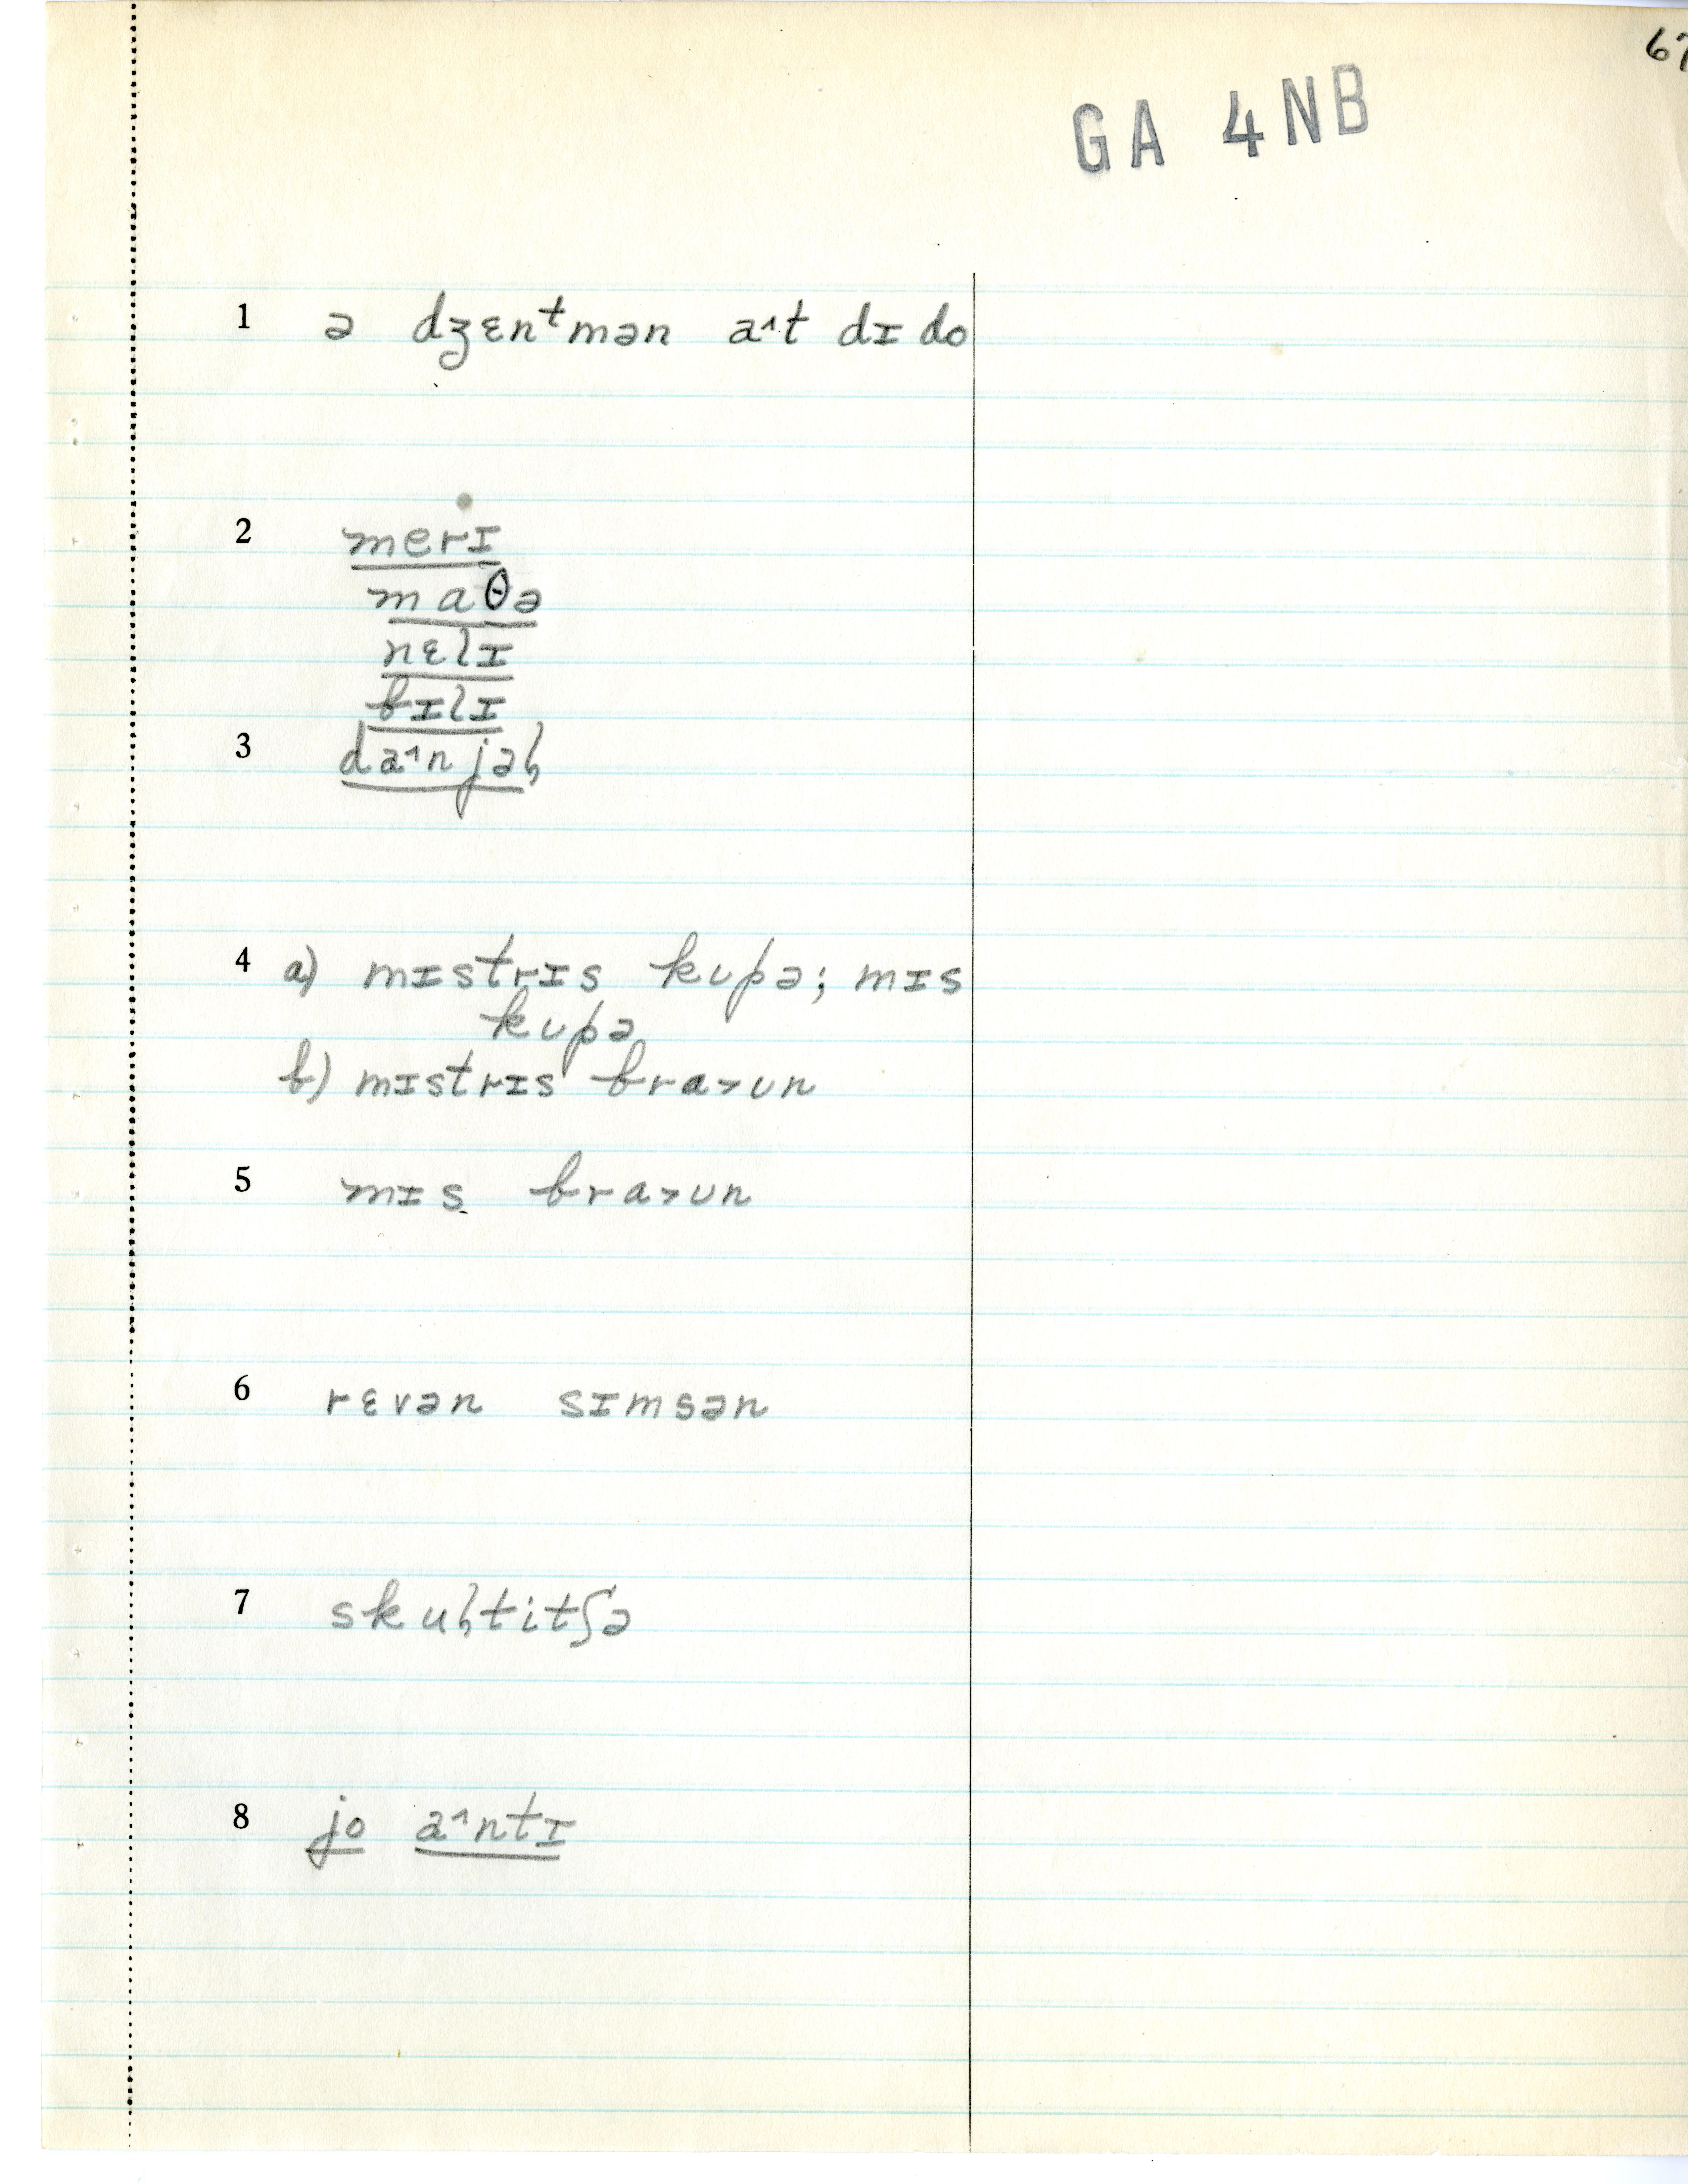 67
GA 4NB
1 ə dʒɛnᵗmən a˄t dɪ do
2 merɪ
maθə
nɛlɪ
bɪlɪ
3 da˄njəɫ
4 a) mɪstrɪs kʊpə; mɪs
kʊpə
b) mɪstrɪs bra˃ʊn
5 mɪs bra˃ʊn
6 rɛvən sɪmsən
7 skuɫtitʃə
8 jo a˄ntɪ